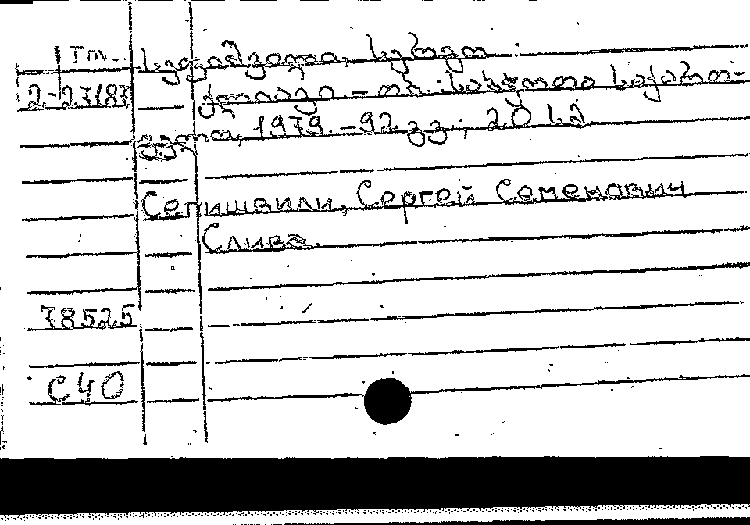 Тт.
სეფიაშვილი, სერგო
2-27187
ქლიავი. – თბ.: საბჭოთა საქართ-
ველო, 1979. – 92 გვ.; 20 სმ
Сепишвили, Сергей Семенович
Слива.
78525
С40